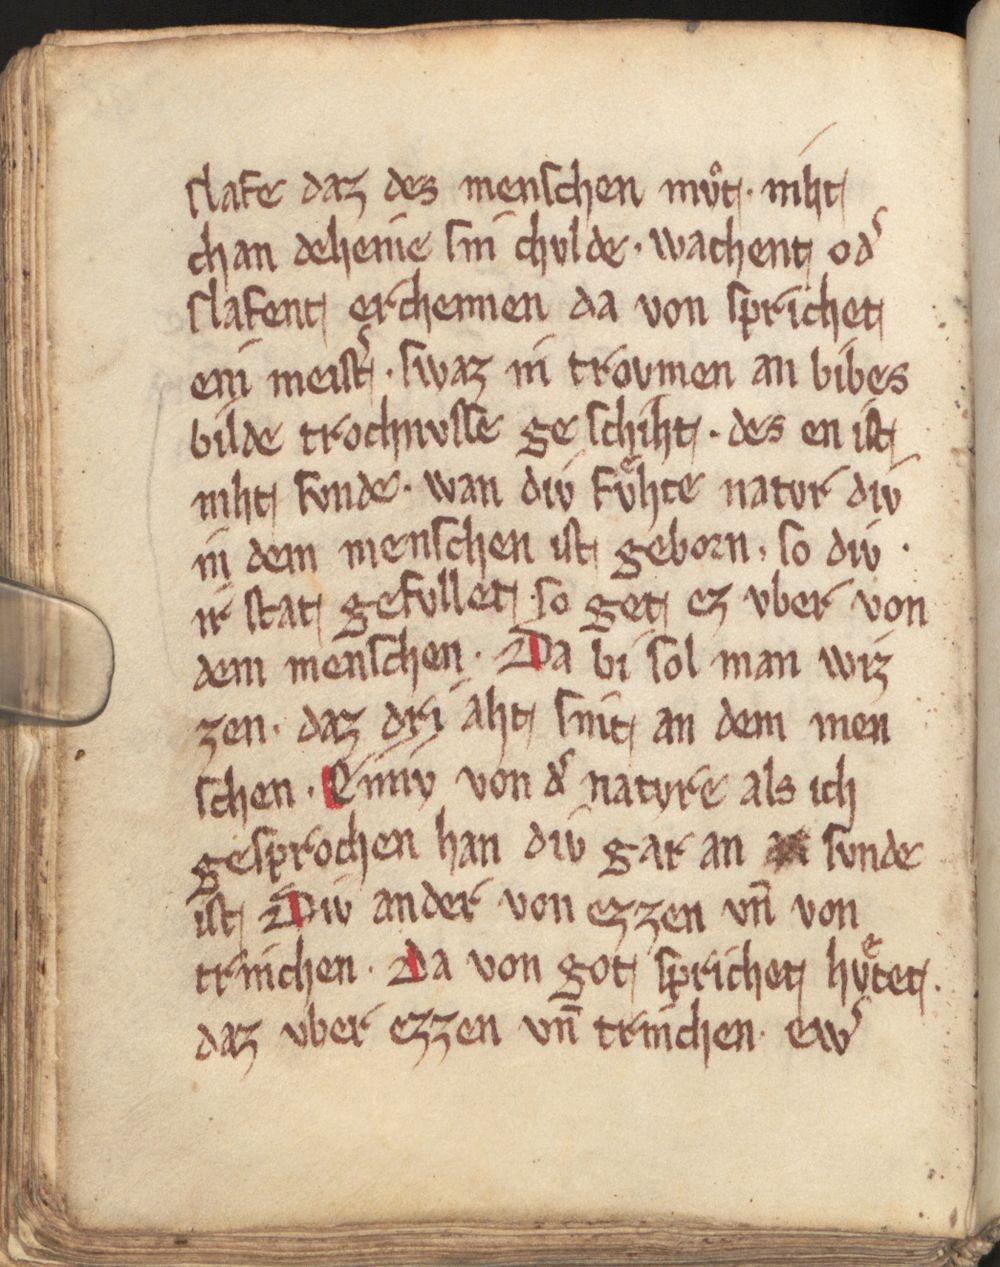 slafe daz des menschen mvͦt · niht
chan deheinie sin chvlde · wachent od͛
slafent erchennen da von sprichet
ein meist͛ · swaz in trovmen an bibes
bilde trochnvsse geschiht · des en ist
niht svnde · wan div fvͤhte natvr div
in dem menschen ist geborn · so div ·
ir stat gefvllet · so get ez vber von
dem menschen · Da bi sol man wiz
zen · daz dri aht sint an dem men
schen · Einiv von d͛ natvre als ich
gesprochen han div gar an svnde
ist Div ander von ezzen vn̄ von
trinchen · Da von got sprichet hvͤtet ·
daz vber ezzen vn̄ trinchen · ew͛